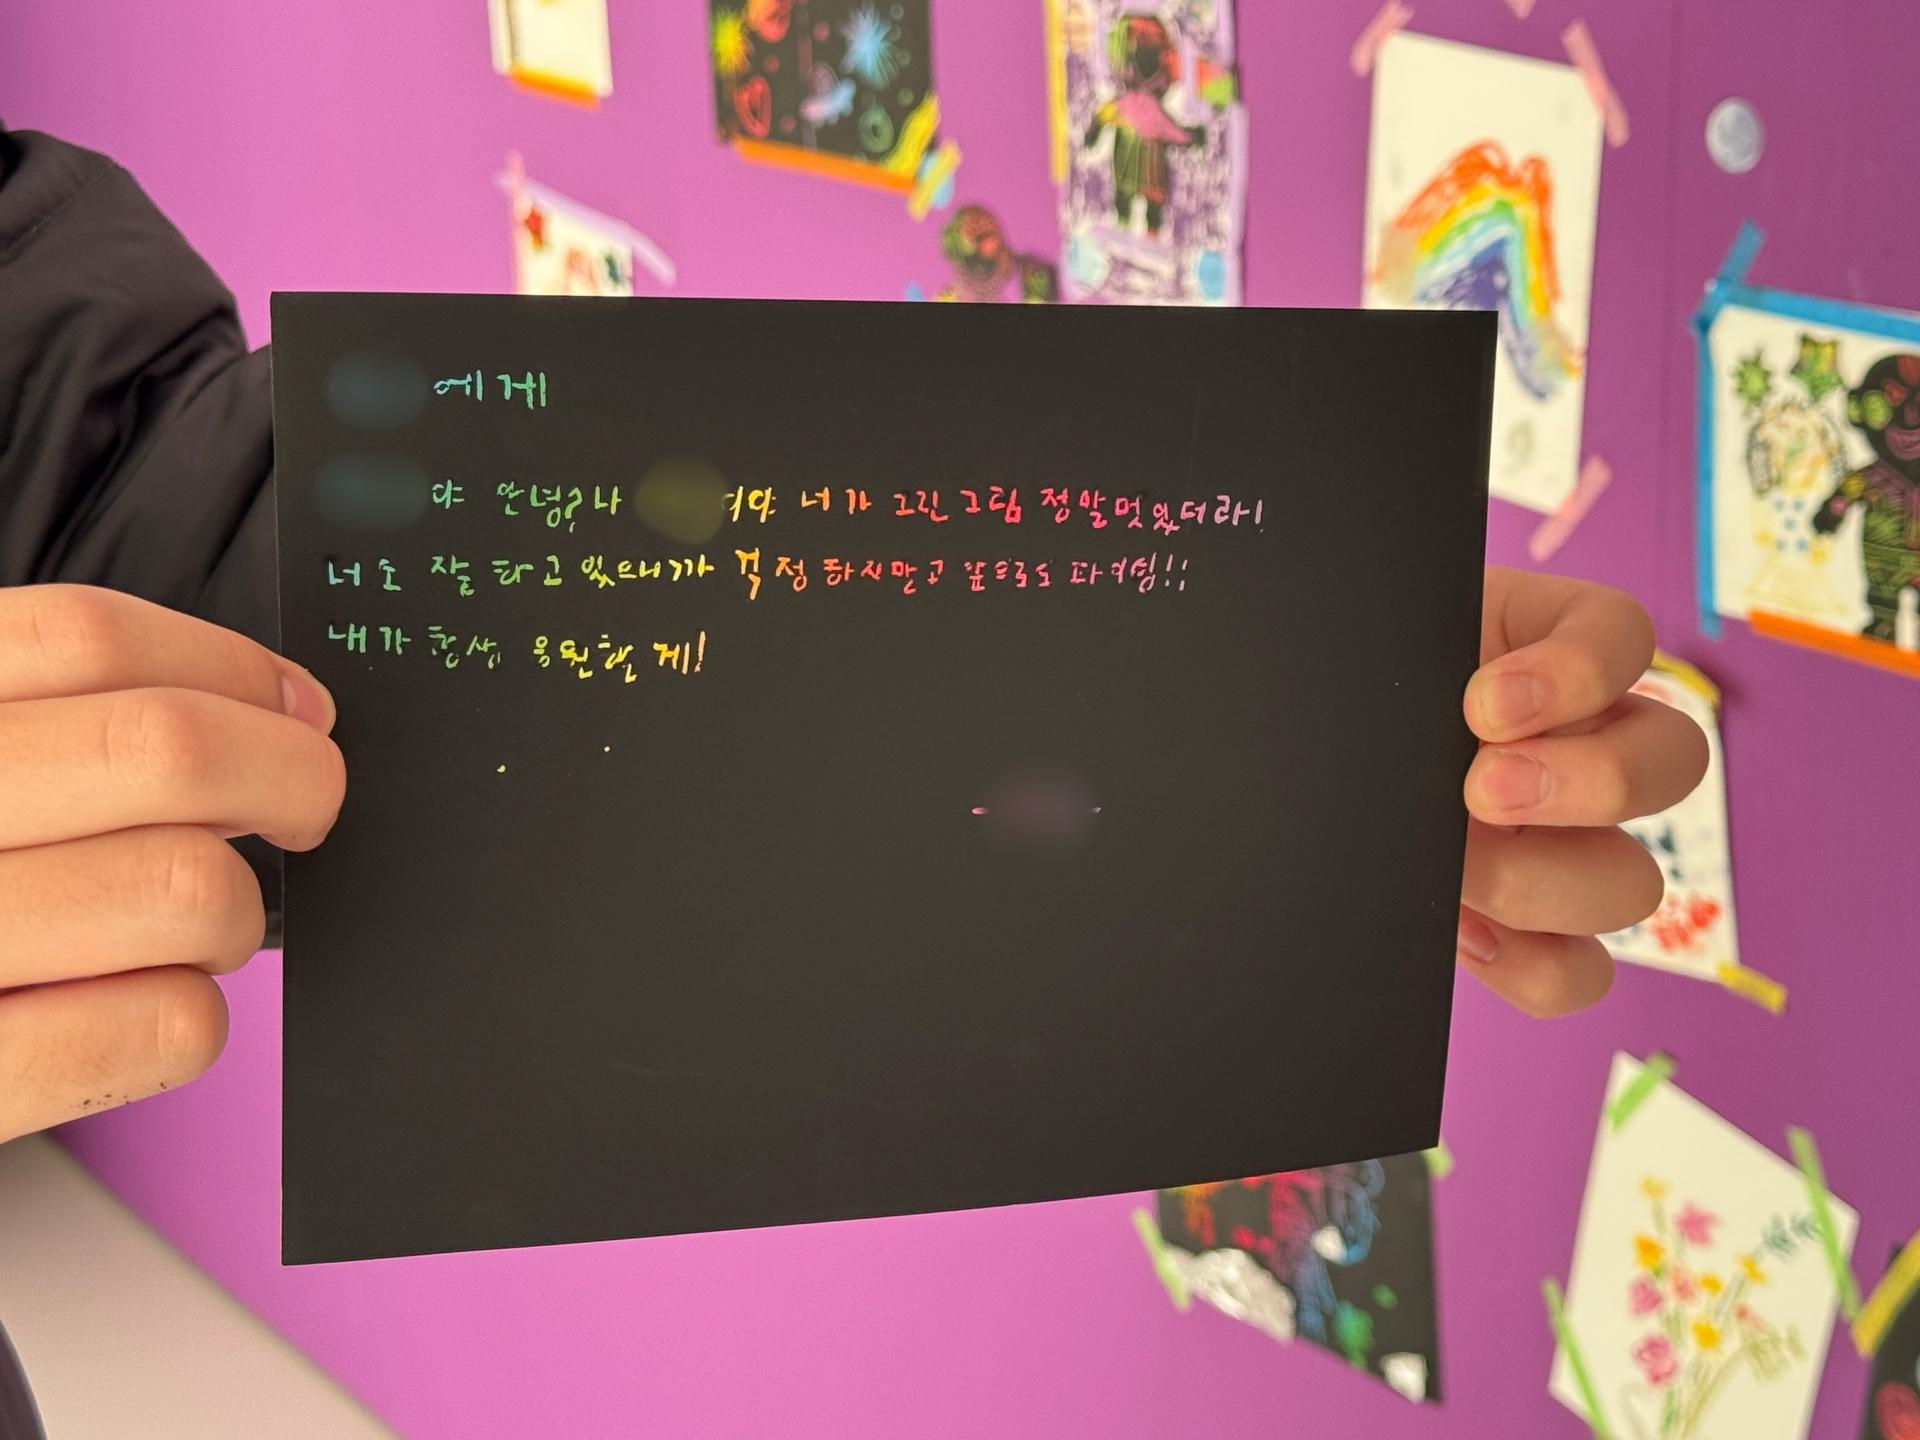 에게
야 안녕? 나 이야 너가 그린 그림 정말 멋있더라!
너 소 잘 하고 있으니까 걱정 하지말고 앞으로도 파이팅!!
내가 항상 응원할게!